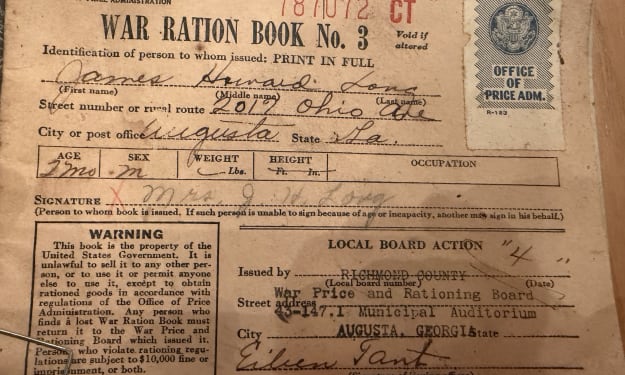 ADMINISTRATION
787072 CT
WAR RATION BOOK No. 3
Void if
altered
Identification of person to whom issued: PRINT IN FULL
James Howard Long
(First name) (Middle name) (Last name)
Street number or rural route 2019 Ohio Ave
City or post office Augusta State Ga.
AGE SEX WEIGHT HEIGHT OCCUPATION
2 mo m Lbs. Ft. In.
SIGNATURE X Mrs. J. H. Long
(Person to whom book is issued. If such person is unable to sign because of age or incapacity, another may sign in his behalf.)
OFFICE
OF
PRICE ADM.
R-123
WARNING
This book is the property of the
United States Government. It is
unlawful to sell it to any other per-
son, or to use it or permit anyone
else to use it, except to obtain
rationed goods in accordance with
regulations of the Office of Price
Administration. Any person who
finds a lost War Ration Book must
return it to the War Price and
Rationing Board which issued it.
Persons who violate rationing regu-
lations are subject to $10,000 fine or
imprisonment, or both.
LOCAL BOARD ACTION "4"
Issued by RICHMOND COUNTY
(Local board number) (Date)
War Price and Rationing Board
Street address 43-147.1 Municipal Auditorium
City AUGUSTA, GEORGIA State
Eileen Tant